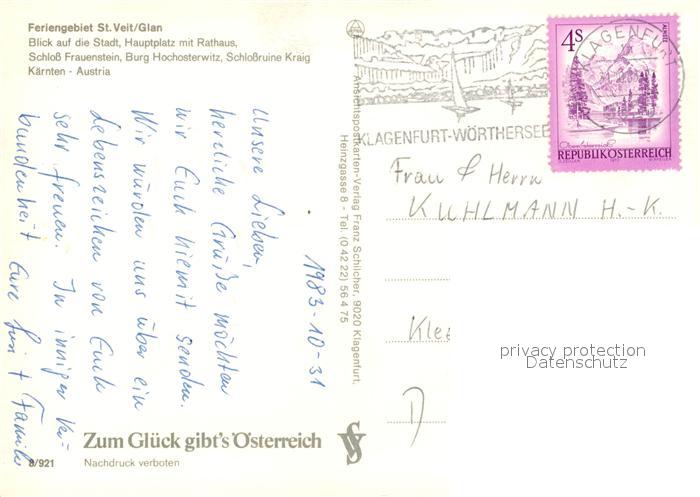 Feriengebiet St. Veit/Glan
Blick auf die Stadt, Hauptplatz mit Rathaus,
Schloß Frauenstein, Burg Hochosterwitz, Schloßruine Kraig
Kärnten - Austria
1983-10-31
Unsere Lieben,
herzliche Grüße möchten
wir Euch hiemit senden.
Wir würden uns über ein
Lebenszeichen von Euch
sehr freuen. In inniger Ver-
bundenheit Eure Susi + Familie
Zum Glück gibt's Österreich
8/921
Nachdruck verboten
Ansichtspostkarten-Verlag Franz Schilcher, 9020 Klagenfurt,
Heinzgasse 8 - Tel. (0 42 22) 56 4 75
KLAGENFURT-WÖRTHERSEE
KLAGENFURT
4S
ALMSEE
Oberösterreich
REPUBLIK ÖSTERREICH
Frau & Herrn
KUHLMANN H.-K.
D
privacy protection
Datenschutz